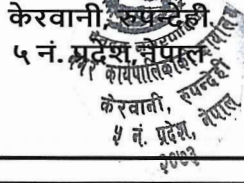 केरवानी, रुपन्देही
५ नं. प्रदेश, नेपाल
नगर कार्यपालिकाको कार्यालय
केरवानी, रुपन्देही
५ नं. प्रदेश, नेपाल
२०७३